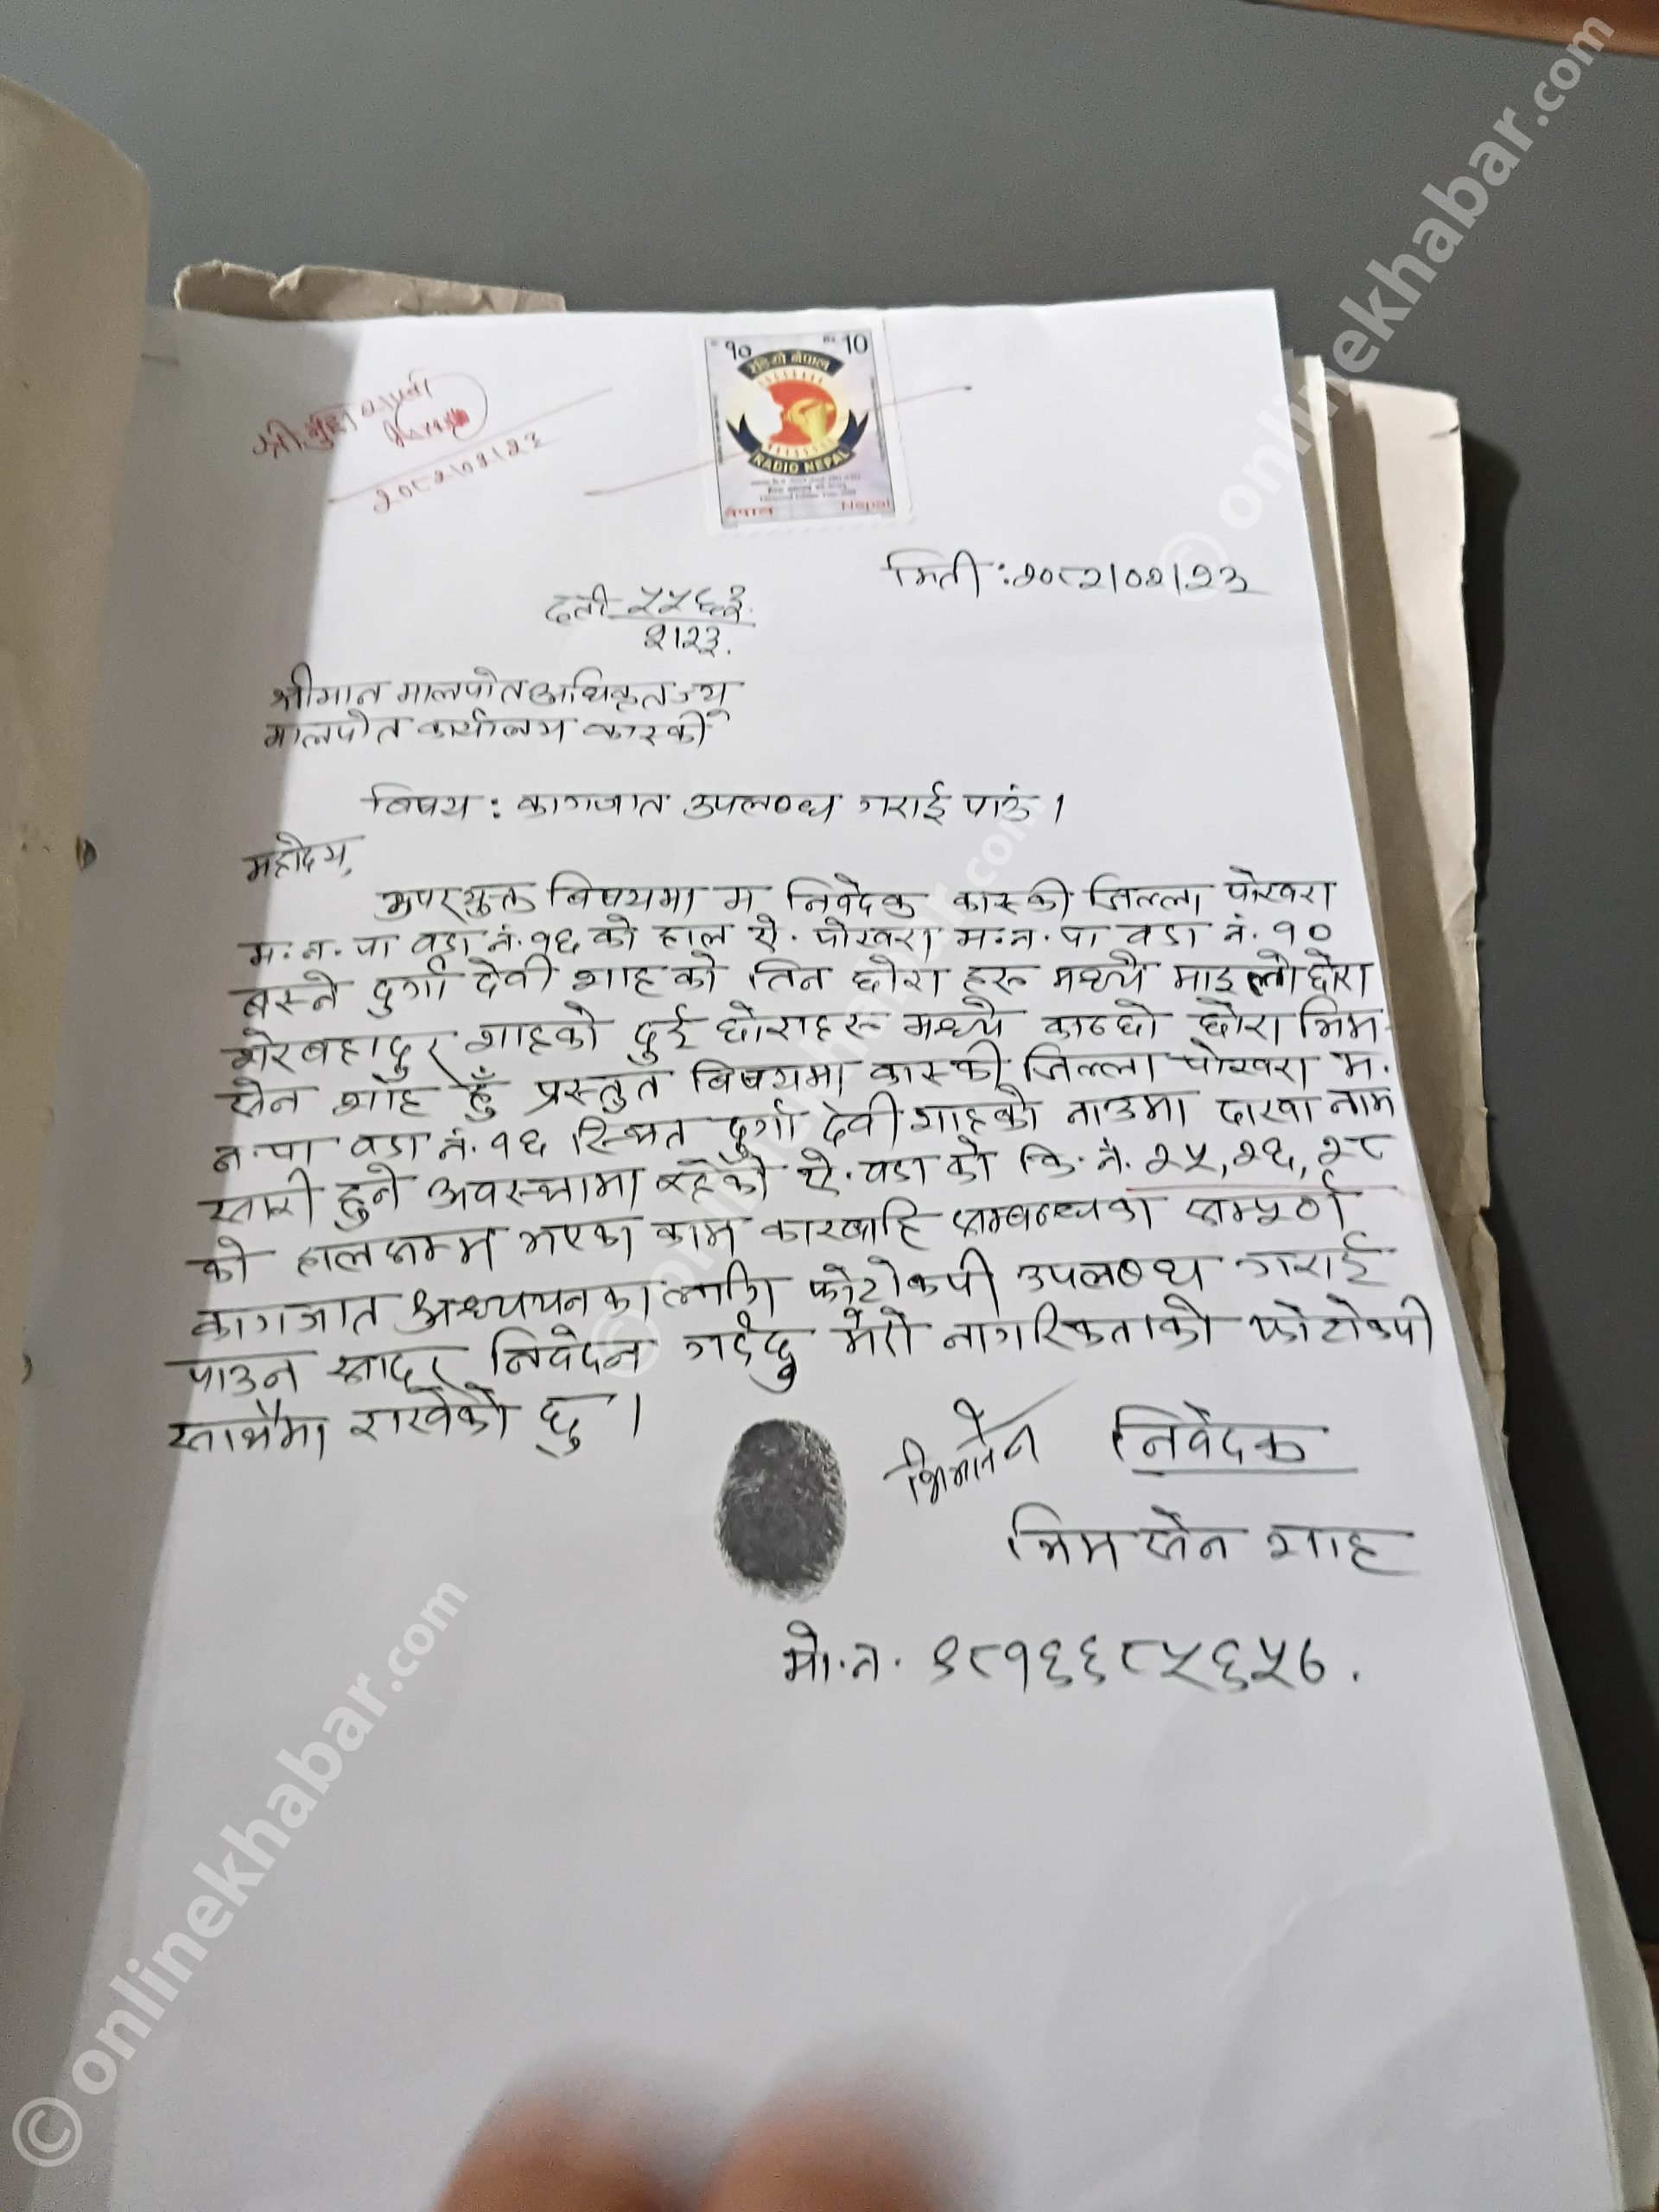 २०८२।०२।२३
१० Rs. 10
रेडियो नेपाल
RADIO NEPAL
नेपाल Nepal
मिती : २०८२।०२।२३
दर्ता ५५६३
२।२३.
श्रीमान मालपोत अधिकृत ज्यू
मालपोत कार्यालय कास्की
विषय : कागजात उपलब्ध गराई पाउं ।
महोदय,
उपरयुक्त विषयमा म निवेदक कास्की जिल्ला पोखरा
म. न. पा वडा नं. १६ को हाल ऐ. पोखरा म. न. पा वडा नं. १०
बस्ने दुर्गा देवी शाहको तिन छोरा हरू मध्यै माइलो छोरा
शेरबहादुर शाहको दुई छोराहरू मध्यै कान्छो छोरा भिम
सेन शाह हुँ प्रस्तुत विषयमा कास्की जिल्ला पोखरा म.
न. पा वडा नं. १६ स्थित दुर्गा देवी शाहको नाउमा दाखा नाम
सारी हुने अवस्थामा रहेको ऐ. वडा को कि. नं. २५, २६, २८
को हालसम्म भएका काम कारवाहि सम्बन्धका सम्पूर्ण
कागजात अध्ययनका लागि फोटोकपी उपलब्ध गराई
पाउन सादर निवेदन गर्दछु मेरो नागरिकताको फोटोकपी
साथैमा राखेको छु ।
भिमसेन निवेदक
भिम सेन शाह
मो. न. ९८१६६८५६५७ .
© onlinekhabar.com
© onlinekhabar.com
© onlinekhabar.com